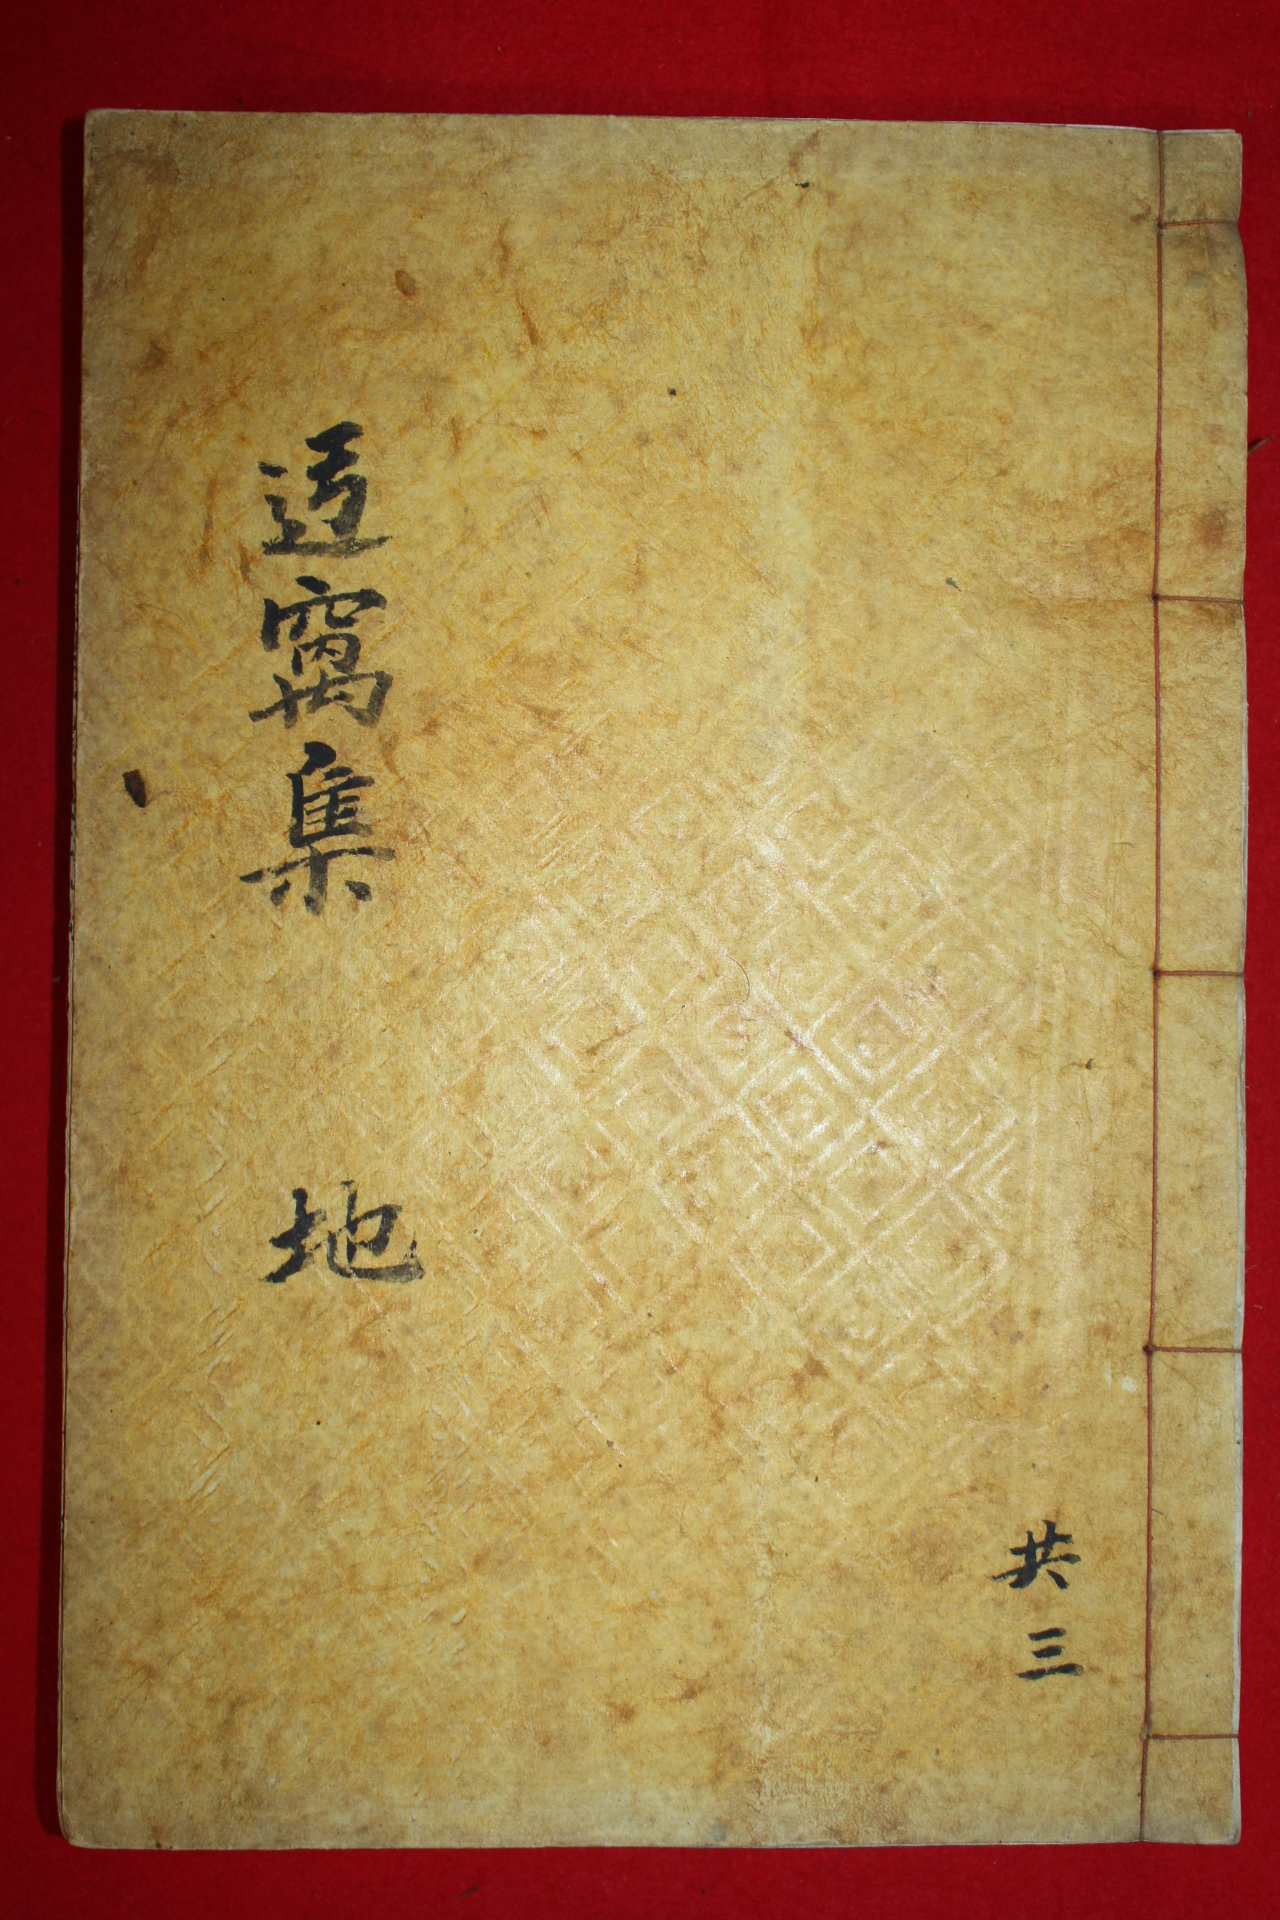 逌窩集 地
共三